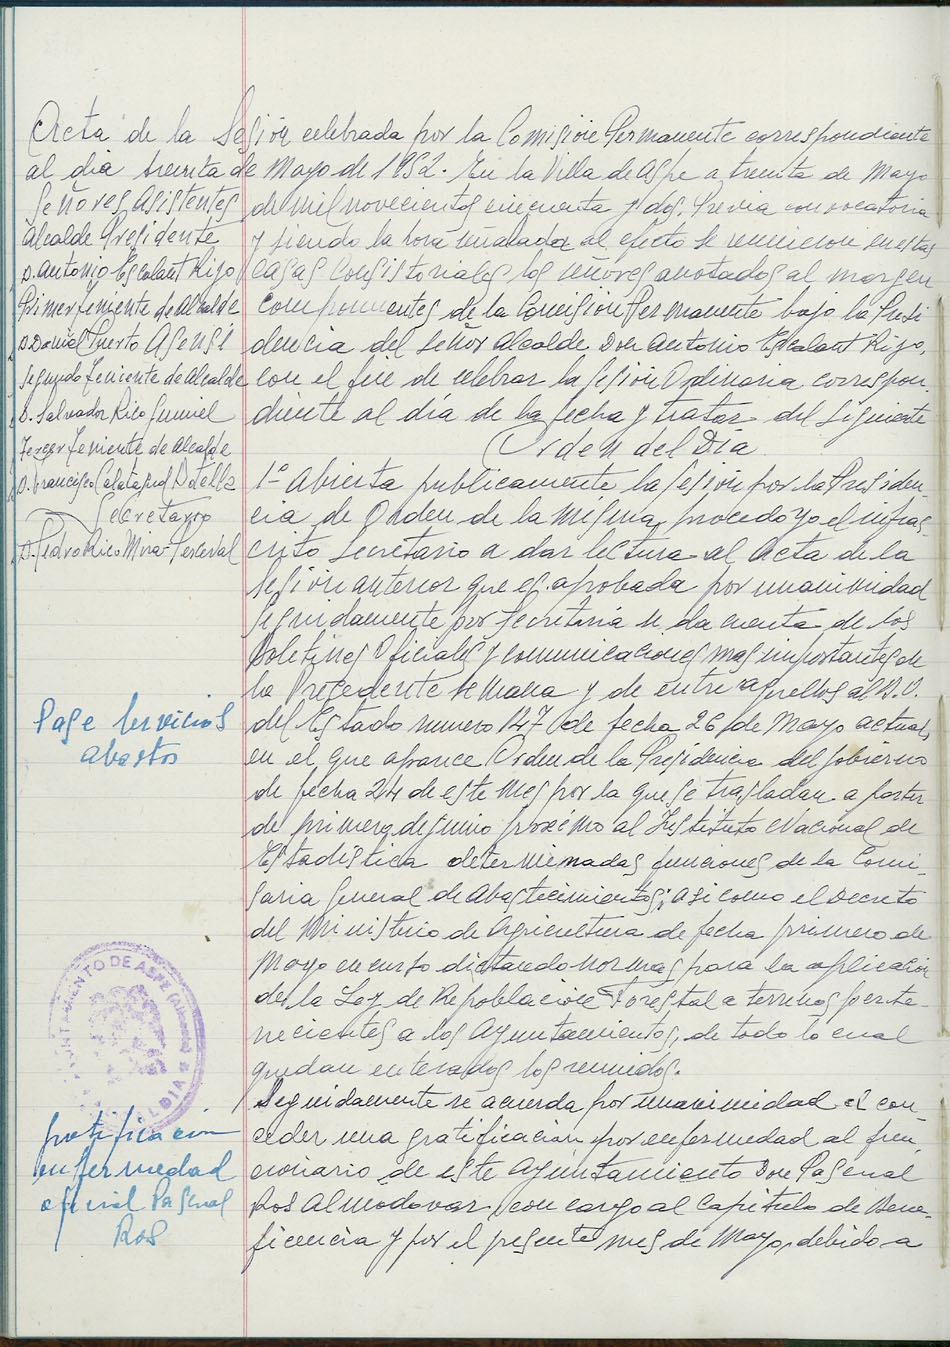 Acta de la Sesión celebrada por la Comisión Permanente correspondiente
al dia treinta de Mayo de 1952. En la Villa de Aspe a treinta de Mayo
Señores Asistentes
Alcalde Presidente
D. Antonio Escalant Rigo
Primer Teniente de Alcalde
D. Daniel Puerto Asensi
Segundo Teniente de Alcalde
D. Salvador Rico Gumiel
Tercer Teniente de Alcalde
D. Francisco Calatayud Botella
Secretario
D. Pedro Rico Mira-Perceval
de mil novecientos cincuenta y dos. Previa convocatoria
y siendo la hora señalada al efecto se reunieron en estas
Casas Consistoriales los señores anotados al margen
componentes de la Comisión Permanente bajo la Presi
dencia del Señor Alcalde Don Antonio Escalant Rigo,
con el fin de celebrar la sesión Ordinaria correspon-
diente al día de la fecha y tratar del siguiente
Orden del Día
1º- Abierta publicamente la Sesión por la Presiden-
cia de Orden de la misma, procedo yo el infras-
crito Secretario a dar lectura al Acta de la
Sesión anterior que es aprobada por unanimidad
Seguidamente por Secretaria se da cuenta de los
Boletines Oficiales y comunicaciones mas importantes de
la Precedente semana y de entre aquellos al B.O.
Pase Servicios
abastos
del Estado numero 147 de fecha 26 de Mayo actual,
en el que aparece Orden de la Presidencia del Gobierno
de fecha 24 de este Mes por la que se trasladan a partir
de primero de junio proximo al Instituto Nacional de
Estadistica determinadas funciones de la Comi-
saria General de Abastecimientos; asi como el Decreto
del Ministerio de Agricultura de fecha primero de
Mayo en curso dictando normas para la aplicación
de la Ley de Repoblación Forestal a terrenos perte-
necientes a los Ayuntamientos, de todo lo cual
quedan enterados los reunidos.
AYUNTAMIENTO DE ASPE (Alicante)
ALCALDIA
Seguidamente se acuerda por unanimidad el con-
gratificación
enfermedad
oficial Pascual
Ros
ceder una gratificación por enfermedad al fun
cionario de este Ayuntamiento Don Pascual
Ros Almodovar, con cargo al Capitulo de Bene-
ficencia y por el presente mes de Mayo, debido a